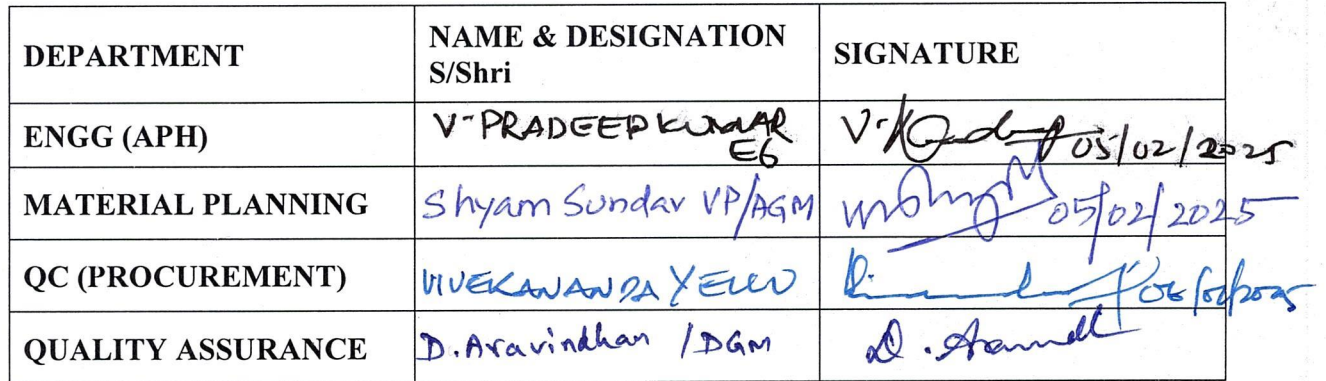 DEPARTMENT
NAME & DESIGNATION
S/Shri
SIGNATURE
ENGG (APH)
V-PRADEEP KUMAR
E6
05/02/2025
MATERIAL PLANNING
Shyam Sundar VP/AGM
05/02/2025
QC (PROCUREMENT)
VIVEKANANDA YELLU
06/02/2025
QUALITY ASSURANCE
D.Aravindhan /DGM